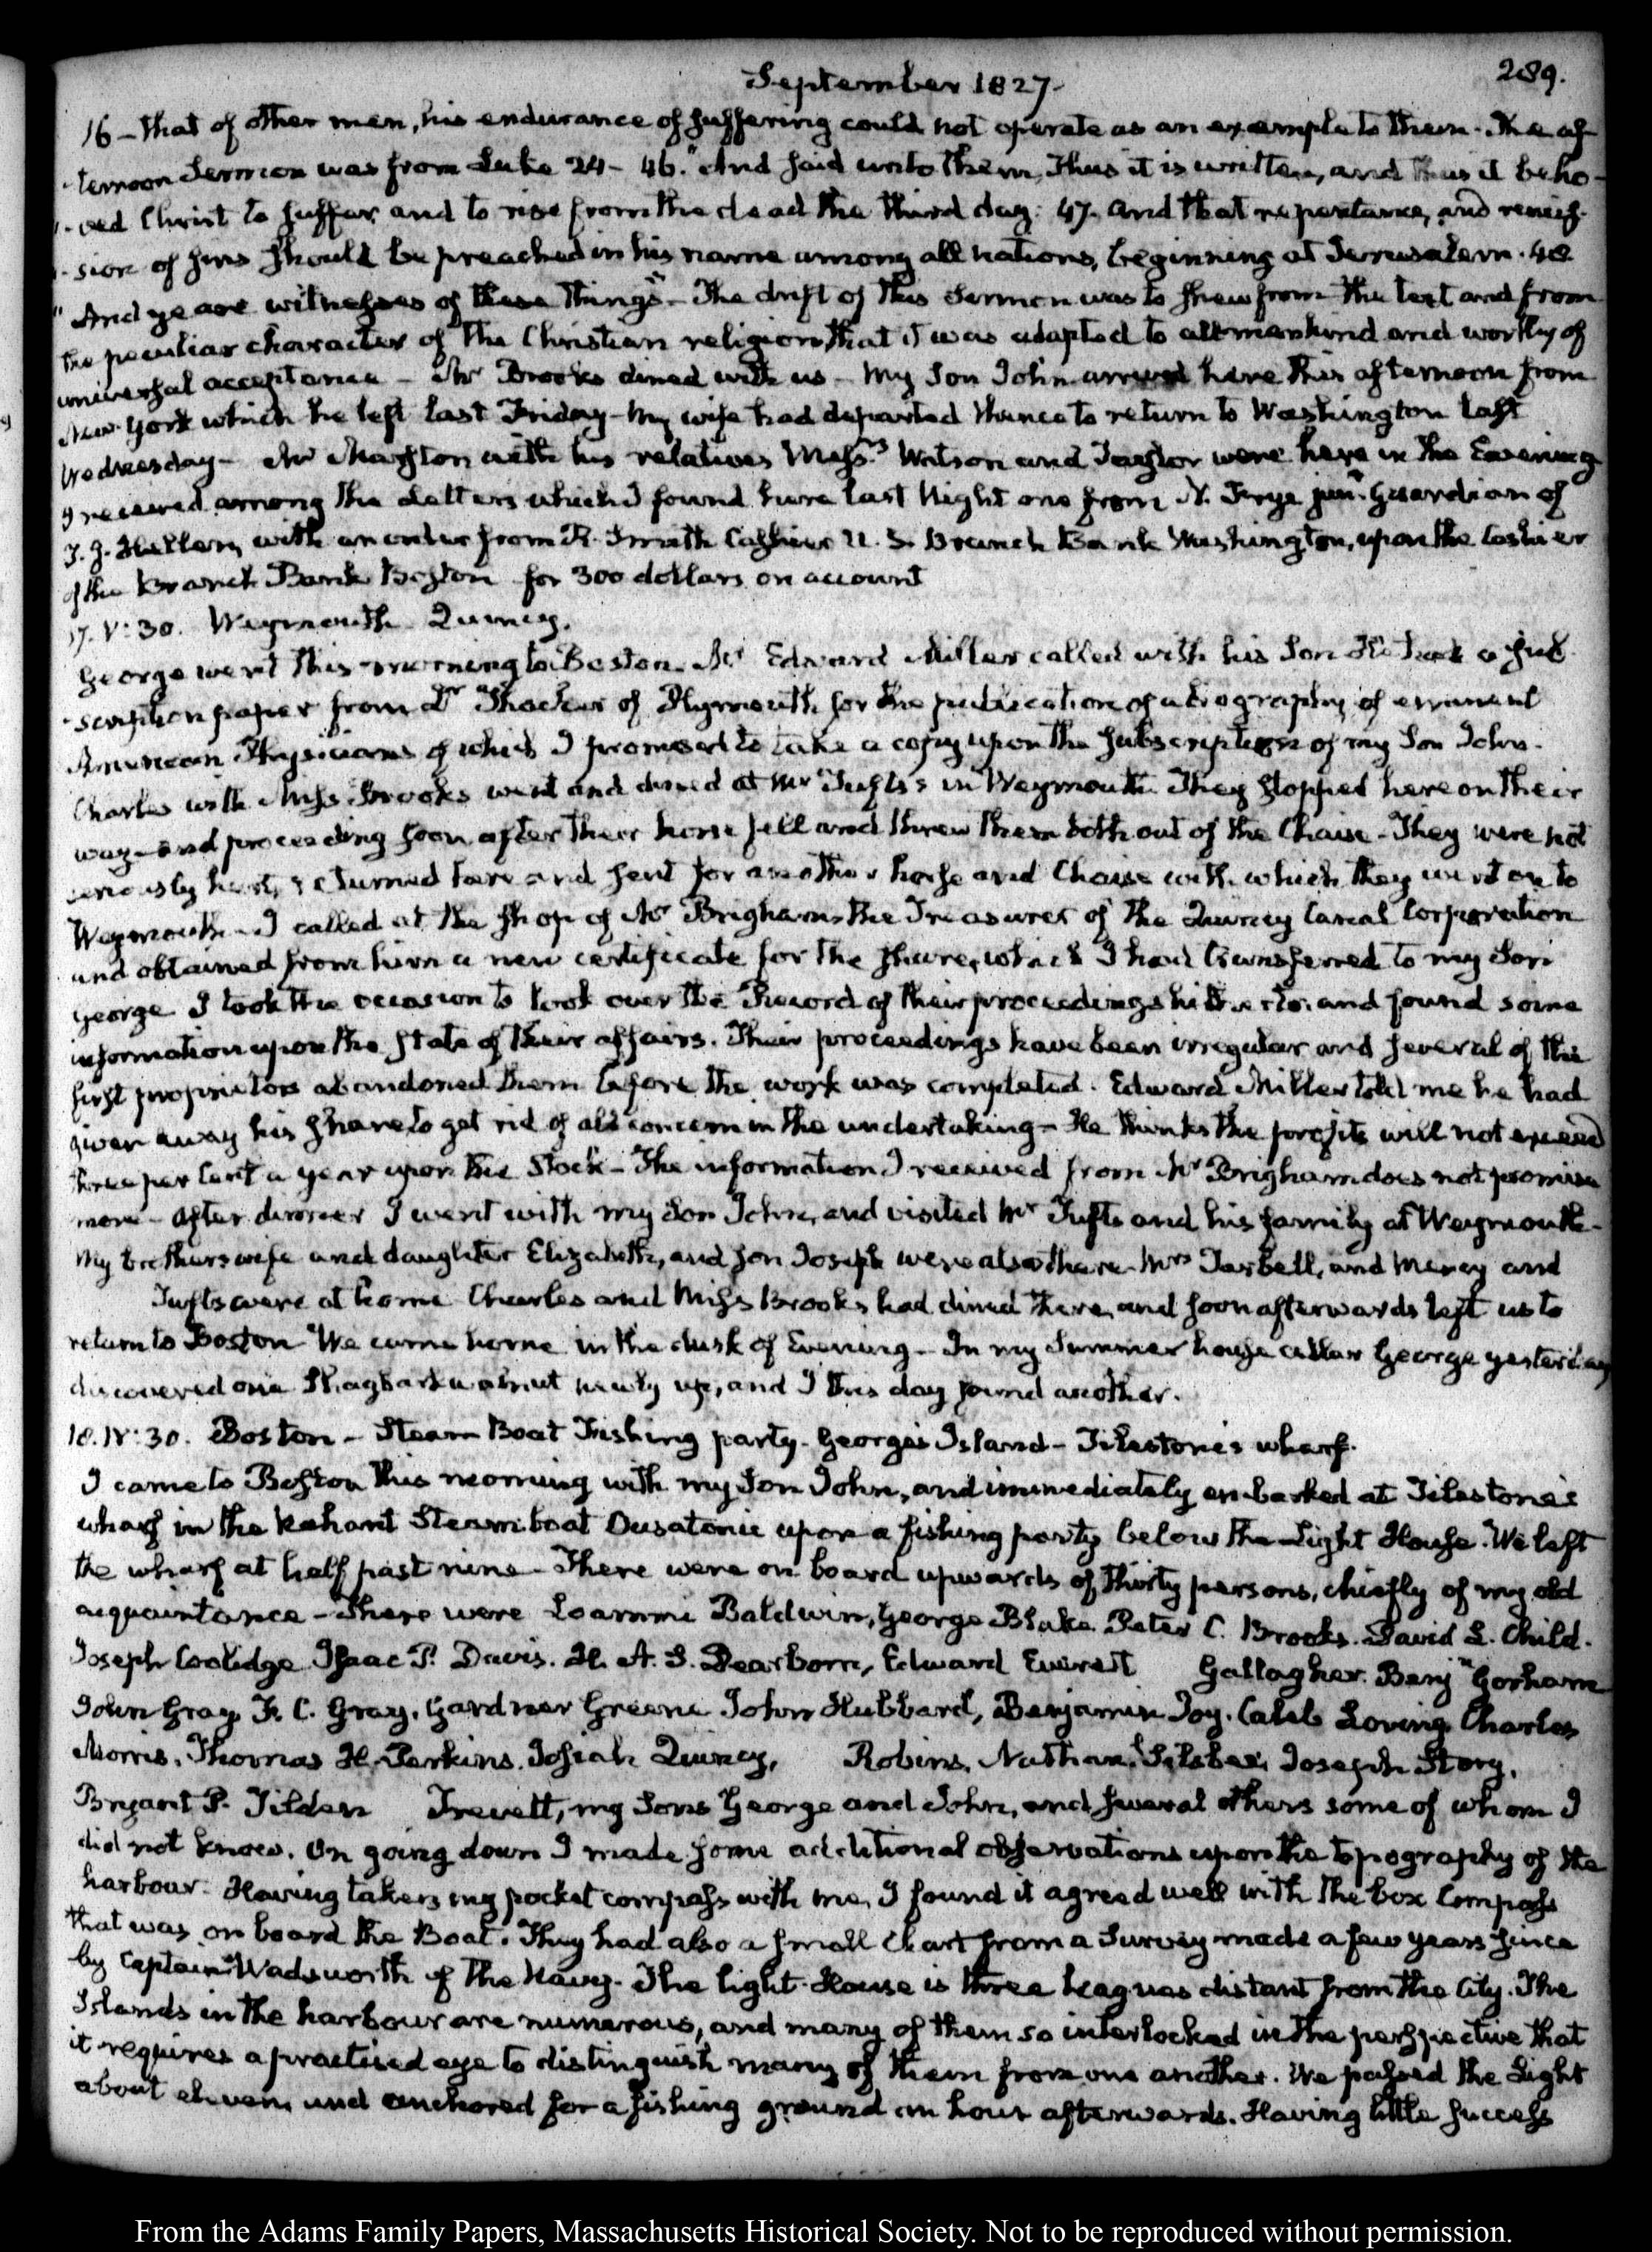 September 1827.
289.
16 - that of other men, his endurance of suffering could not operate as an example to them. The af-
-ternoon Sermon was from Luke 24 - 46. "And said unto them, Thus it is written, and thus it beho-
"-ved Christ to suffer and to rise from the dead the third day: 47. and that repentance, and remis-
"-sion of sins should be preached in his name among all nations, beginning at Jerusalem. 48
"And ye are witnesses of these things" - The drift of this Sermon was to shew from the text and from
the peculiar character of the Christian religion that it was adapted to all mankind and worthy of
universal acceptance - Mr Brooks dined with us - My Son John arrived here this afternoon from
New-York which he left last Friday - My wife had departed thence to return to Washington last
Wednesday - Mr Marston with his relatives Messrs Watson and Taylor were here in the Evening
I received among the Letters which I found here last Night one from N. Frye junr Guardian of
J. J. Hellen, with an order from R. Smith Cashier U. S. Branch Bank Washington, upon the Cashier
of the Branch Bank Boston for 300 dollars on account
17. V: 30. Weymouth. Quincy.
George went this morning to Boston. Mr Edward Miller called with his Son He took a sub-
-scription paper from Dr Thacher of Plymouth for the publication of a biography of eminent
American Physicians of which I promised to take a copy upon the subscription of my Son John.
Charles with Miss Brooks went and dined at Mr Tufts's in Weymouth. They stopped here on their
way - and proceeding soon after their horse fell and threw them both out of the Chaise - They were not
seriously hurt, returned here and sent for another horse and Chaise with which they went on to
Weymouth - I called at the shop of Mr Brigham the Treasurer of the Quincy Canal Corporation
and obtained from him a new certificate for the share, which I had transferred to my Son
George I took the occasion to look over the Record of their proceedings hitherto, and found some
information upon the state of their affairs. Their proceedings have been irregular and several of the
first proprietors abandoned them before the work was completed. Edward Miller told me he had
given away his share to get rid of all concern in the undertaking - He thinks the profits will not exceed
three per Cent a year upon the Stock - The information I received from Mr Brigham does not promise
more - After dinner I went with my Son John, and visited Mr Tufts and his family at Weymouth -
My brother's wife and daughter Elizabeth, and son Joseph were also there. Mrs Tarbell, and Mercy and
Tufts were at home Charles and Miss Brooks had dined there, and soon afterwards left us to
return to Boston We came home in the dusk of Evening - In my Summer house cellar George yesterday
discovered one Shagbark walnut newly up, and I this day found another.
18. IV: 30. Boston - Steam Boat Fishing party. George's Island - Tileston's wharf.
I came to Boston this morning with my Son John, and immediately embarked at Tileston's
wharf in the Nahant Steamboat Ousatonic upon a fishing party below the Light House. We left
the wharf at half past nine - There were on board upwards of thirty persons, chiefly of my old
acquaintance - There were Loammi Baldwin, George Blake Peter C. Brooks. David L. Child.
Joseph Coolidge Isaac P. Davis. H. A. S. Dearborn, Edward Everett Gallagher. Benjn Gorham
John Gray F. C. Gray, Gardner Greene John Hubbard, Benjamin Joy. Caleb Loring Charles
Morris. Thomas H. Perkins. Josiah Quincy, Robins, Nathan. Silsbee, Joseph Story,
Bryant P. Tilden Trevett, my Sons George and John, and several others some of whom I
did not know. On going down I made some additional observations upon the topography of the
harbour. Having taken my pocket compass with me, I found it agreed well with the box Compass
that was on board the Boat. They had also a small Chart from a Survey made a few years since
by Captain Wadsworth of the Navy. The light-House is three leagues distant from the City. The
Islands in the harbour are numerous, and many of them so interlocked in the perspective that
it requires a practised eye to distinguish many of them from one another. We passed the Light
about eleven, and anchored for a fishing ground an hour afterwards. Having little success
From the Adams Family Papers, Massachusetts Historical Society. Not to be reproduced without permission.